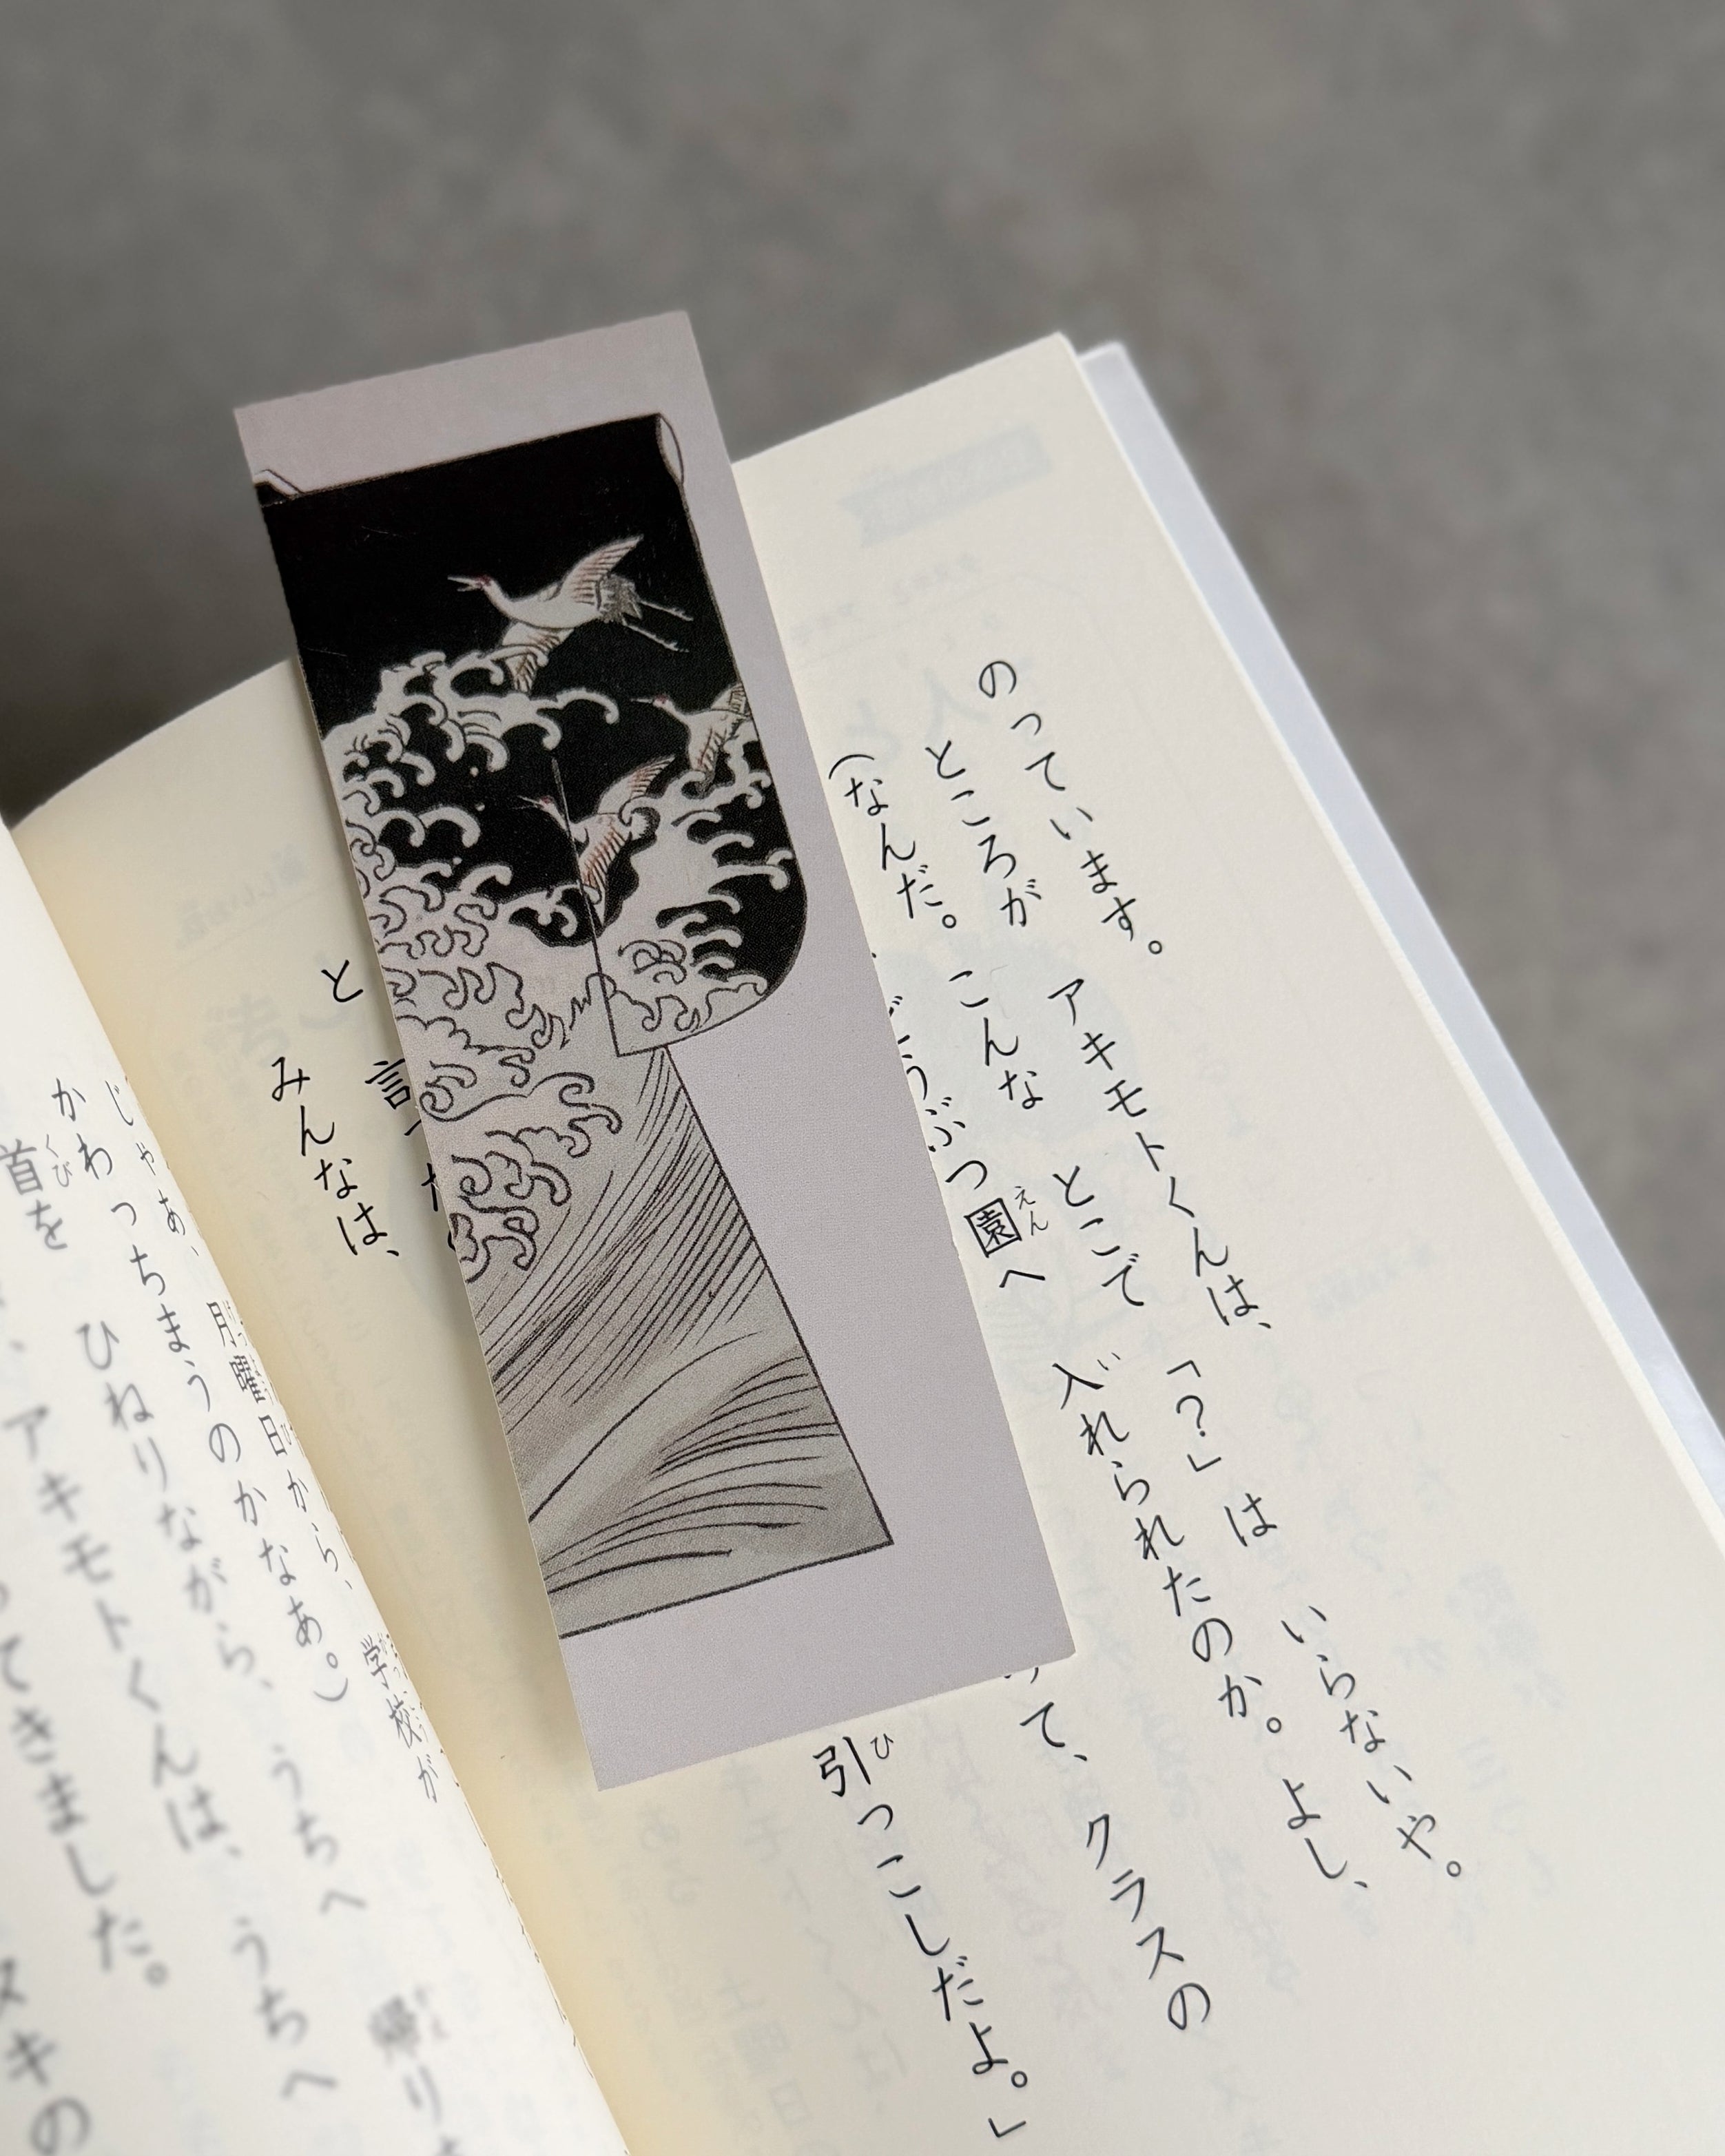 のっています。
ところが アキモトくんは、
（なんだ。 こんな とこで 「？」は いらないや。
どうぶつ園へ 入れられたのか。 よし、
て、 クラスの
引っこしだよ。」
と 言った
みんなは、
じゃあ、 月曜日から、 学校が
かわっちまうのかなあ。）
首を ひねりながら、 うちへ 帰り
、 アキモトくんは、 うちへ
てきました。
キの